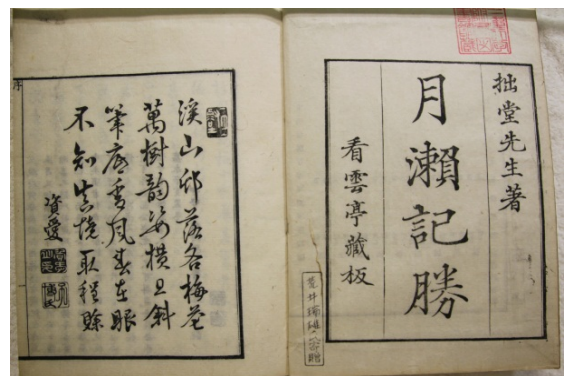 拙堂先生著
月瀨記勝
看雲亭藏板
溪山邨落各梅花
萬樹韵姿橫且斜
筆底香風春在眼
不知真境取程賒
資愛